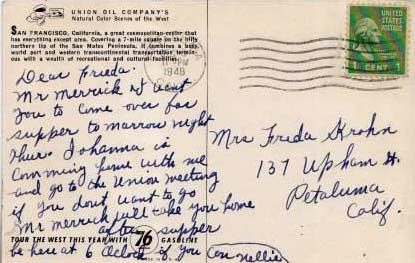 UNION OIL COMPANY'S
Natural Color Scenes of the West
SAN FRANCISCO, California, a great cosmopolitan center that
has everything except area. Covering a 7-mile square on the hilly
northern tip of the San Mateo Peninsula, it combines a busy
world port and western transcontinental transportation termi-
nus with a wealth of recreational and cultural facilities.
PM
1948
UNITED STATES
POSTAGE
1 CENT 1
Dear Freda.
Mr Merrick & I want
you to come over for
supper to marrow night
Thurs Johanna is
comming home with me
and go to the Union meeting
if you dont want to go
Mr Merrick will take you home
after supper
be here at 6 Oclock if you can Nellie
Mrs Freda Krohn
137 Upham St.
Petaluma
Calif.
TOUR THE WEST THIS YEAR WITH 76 GASOLINE